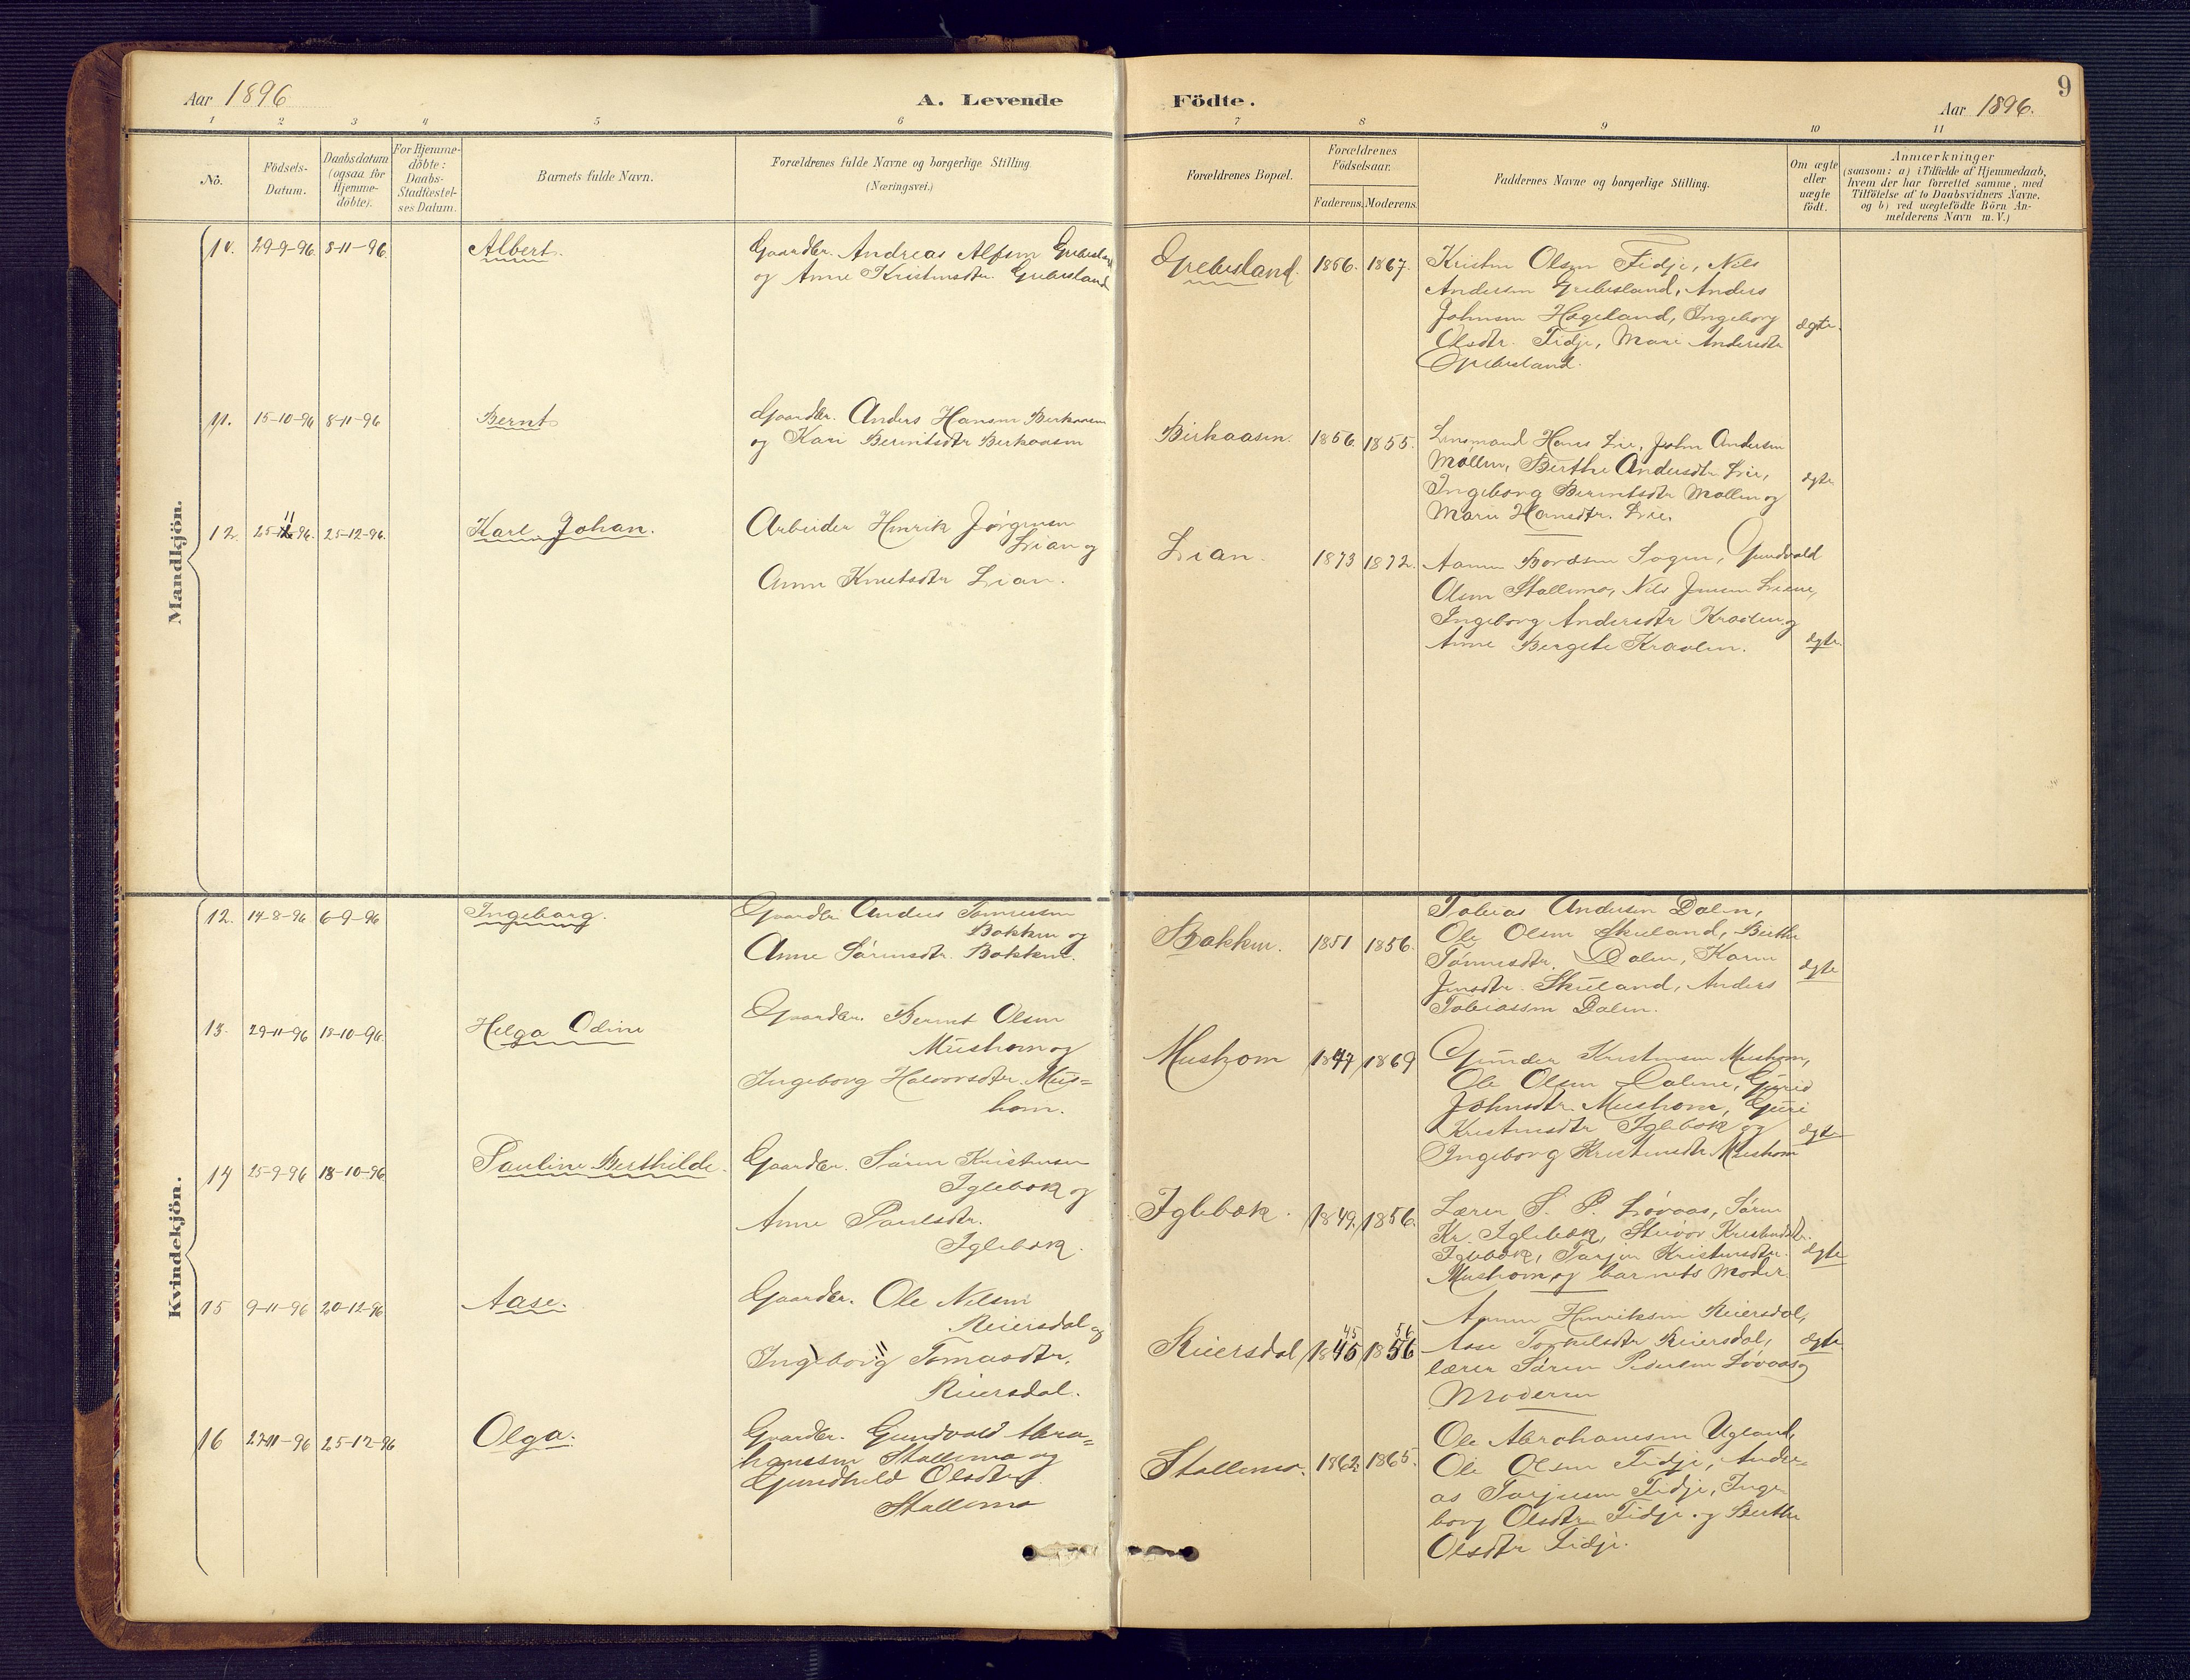 Aar 1896
A. Levende
Födte.
9
Aar 1896.
1 2 3 4 5 6 7 8 9 10 11
No.
Födsels-
Datum.
Daabsdatum
(ogsaa for
Hjemme-
döbte).
For Hjemme-
döbte:
Daabs-
Stadfæstel-
ses Datum.
Barnets fulde Navn.
Forældrenes fulde Navne og borgerlige Stilling.
(Næringsvei.)
Forældrenes Bopæl.
Forældrenes
Födselsaar.
Faderens. Moderens.
Faddernes Navne og borgerlige Stilling.
Om ægte
eller
uægte
födt.
Anmærkninger
(saasom: a) i Tilfælde af Hjemmedaab,
hvem der har forrettet samme, med
Tilföielse af to Daabsvidners Navne.
og b) ved uægtefödte Börn An-
melderens Navn m. V.)
Mandkjön.
10. 29-9-96. 8-11-96. Albert.
Gaardbr. Andreas Alfsen Grebesland
og Anne Kristensdtr. Grebesland
Grebesland. 1856. 1867.
Kristen Olsen Fidje, Nils
Andersen Grebesland, Anders
Johnsen Hægeland, Ingeborg
Olsdtr. Fidje, Mari Andersdtr
Grebesland.
ægte.
11. 15-10-96 8-11-96 Bernt
Gaardbr. Anders Hansen Birkaasen
og Kari Berntsdtr Birkaasen
Birkaasen. 1856. 1855.
Lensmand Hans Lie, John Andersen
Møllen, Berthe Andersdtr Lie,
Ingeborg Berntsdtr Møllen og
Marie Hansdtr. Lie.
ægte
12. 25-11-96. 25-12-96. Karl Johan.
Arbeider Henrik Jørgensen
Lian og
Anne Knutsdtr Lian.
Lian. 1873 1872.
Aanen Bordsen Sogn, Gundvald
Olsen Stallemo, Nils Jensen Liene,
Ingeborg Andersdtr Kraalen og
Anne Bergete Kraalen.
ægte.
Kvindekjön.
12. 14-8-96 6-9-96 Ingeborg.
Gaardbr. Anders Tønnessen
Bakken og
Anne Sørensdtr. Bakken.
Bakken. 1851 1856.
Tobias Andersen Dalen,
Ole Olsen Skueland, Berthe
Tønnesdtr. Dalen, Karen
Jensdtr. Skueland, Anders
Tobiassen Dalen.
ægte
13. 29-11-96 18-10-96. Helga Odine
Gaardbr. Bernt Olsen
Mushom og
Ingeborg Halvorsdtr. Mus=
hom.
Mushom 1847 1869
Gunder Kristensen Mushom,
Ole Olsen Dalene, Gurid
Johnsdtr. Mushom, Guri
Kristensdtr Iglebæk og
Ingeborg Kristensdtr. Mushom
ægte
14 25-9-96 18-10-96 Pauline Berthilde.
Gaardbr. Søren Kristensen
Iglebæk og
Anne Paulsdtr.
Iglebæk.
Iglebæk. 1849. 1856.
Lærer S. P. Løvaas, Søren
Kr. Iglebæk, Siévor Kristensdtr.
Iglebæk, Tarjer Kristensdtr.
Mushom og barnets Moder.
ægte
15 9-11-96 20-12-96 Aase.
Gaardbr. Ole Nilsen
Reiersdal og
Ingeborg Tomasdtr.
Reiersdal.
45 56
Reiersdal 1845 1856
Aanen Henriksen Reiersdal,
Aase Torkelsdtr Reiersdal,
lærer Søren Pedersen Løvaas og
Moderen
ægte
16 27-11-96 25-12-96 Olga.
Gaardbr. Gundvald Abra=
hamssen Stallemo og
Gundhild Olsdtr.
Stallemo
Stallemo. 1862. 1865.
Ole Abrahamsen Ugland,
Ole Olsen Fidje, Andre=
as Tarjesen Fidje, Inge
borg Olsdtr Fidje og Berthe
Olsdtr Fidje.